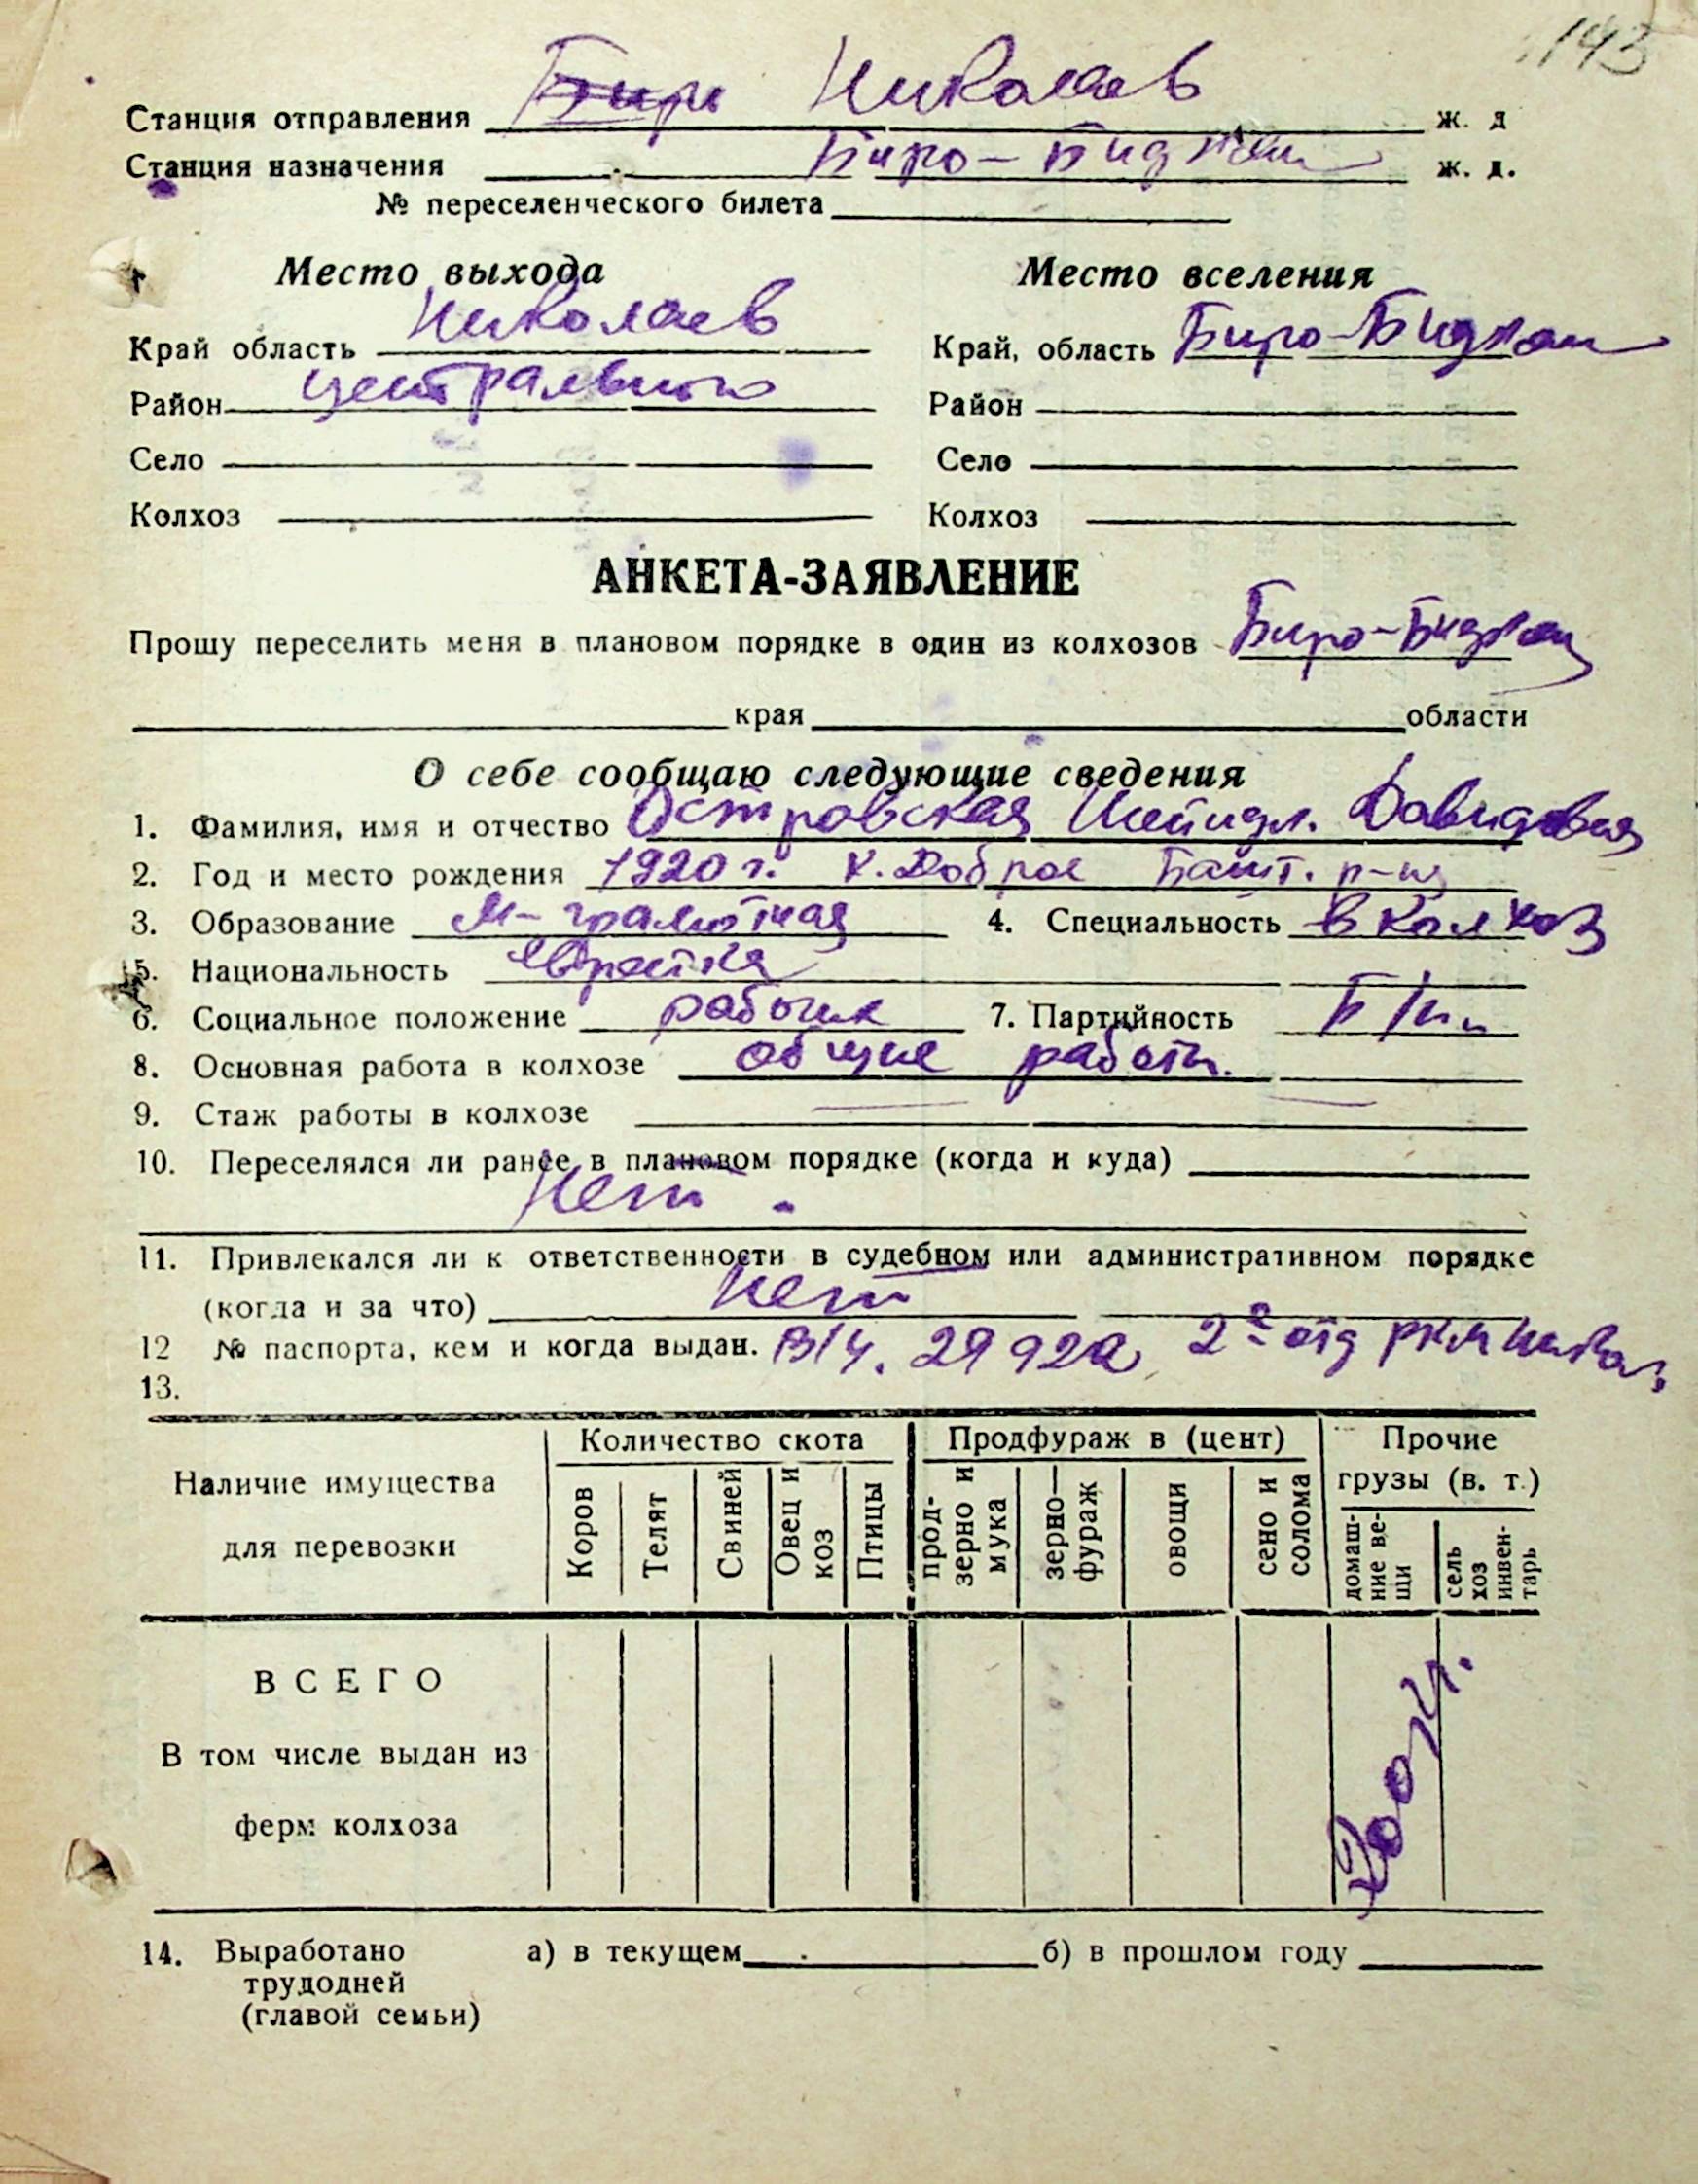 143
Станция отправления Биро Николаев ж. д
Станция назначения Биро-Биджан ж. д.
№ переселенческого билета
Место выхода
Место вселения
Край область Николаев
Край, область Биро-Биджан
Район Центрального
Район
Село
Село
Колхоз
Колхоз
АНКЕТА-ЗАЯВЛЕНИЕ
Прошу переселить меня в плановом порядке в один из колхозов Биро-Биджан
края области
О себе сообщаю следующие сведения
1. Фамилия, имя и отчество Островская Шейндл. Давидовна
2. Год и место рождения 1920 г. к. Доброе Башт. р-на
3. Образование м-грамотная 4. Специальность в колхоз
5. Национальность еврейка
6. Социальное положение рабочих 7. Партийность Б/п
8. Основная работа в колхозе общие работы.
9. Стаж работы в колхозе
10. Переселялся ли ранее в плановом порядке (когда и куда)
Нет.
11. Привлекался ли к ответственности в судебном или административном порядке
(когда и за что) Нет
12 № паспорта, кем и когда выдан. 2е отд РКМ Никол.
13.
Наличие имущества для перевозки
Количество скота
Продфураж в (цент)
Прочие грузы (в. т.)
Коров
Телят
Свиней
Овец и коз
Птицы
прод-зерно и мука
зерно—фураж
овощи
сено и солома
домаш-ние ве-щи
сель хоз инвен-тарь
ВСЕГО
В том числе выдан из
ферм колхоза
14. Выработано а) в текущем б) в прошлом году
трудодней
(главой семьи)